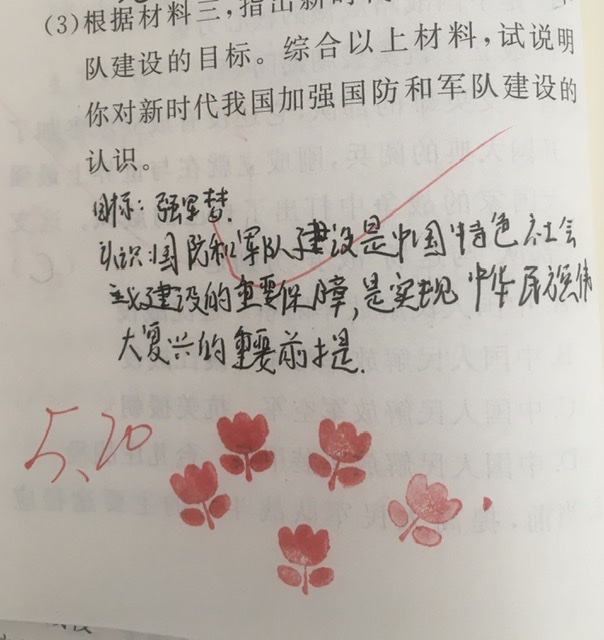 (3)根据材料三,指出新时
队建设的目标。综合以上材料,试说明
你对新时代我国加强国防和军队建设的
认识。
目标:强军梦.
认识:国防和军队建设是中国特色社会
主义建设的重要保障,是实现中华民族伟
大复兴的重要前提.
5.20